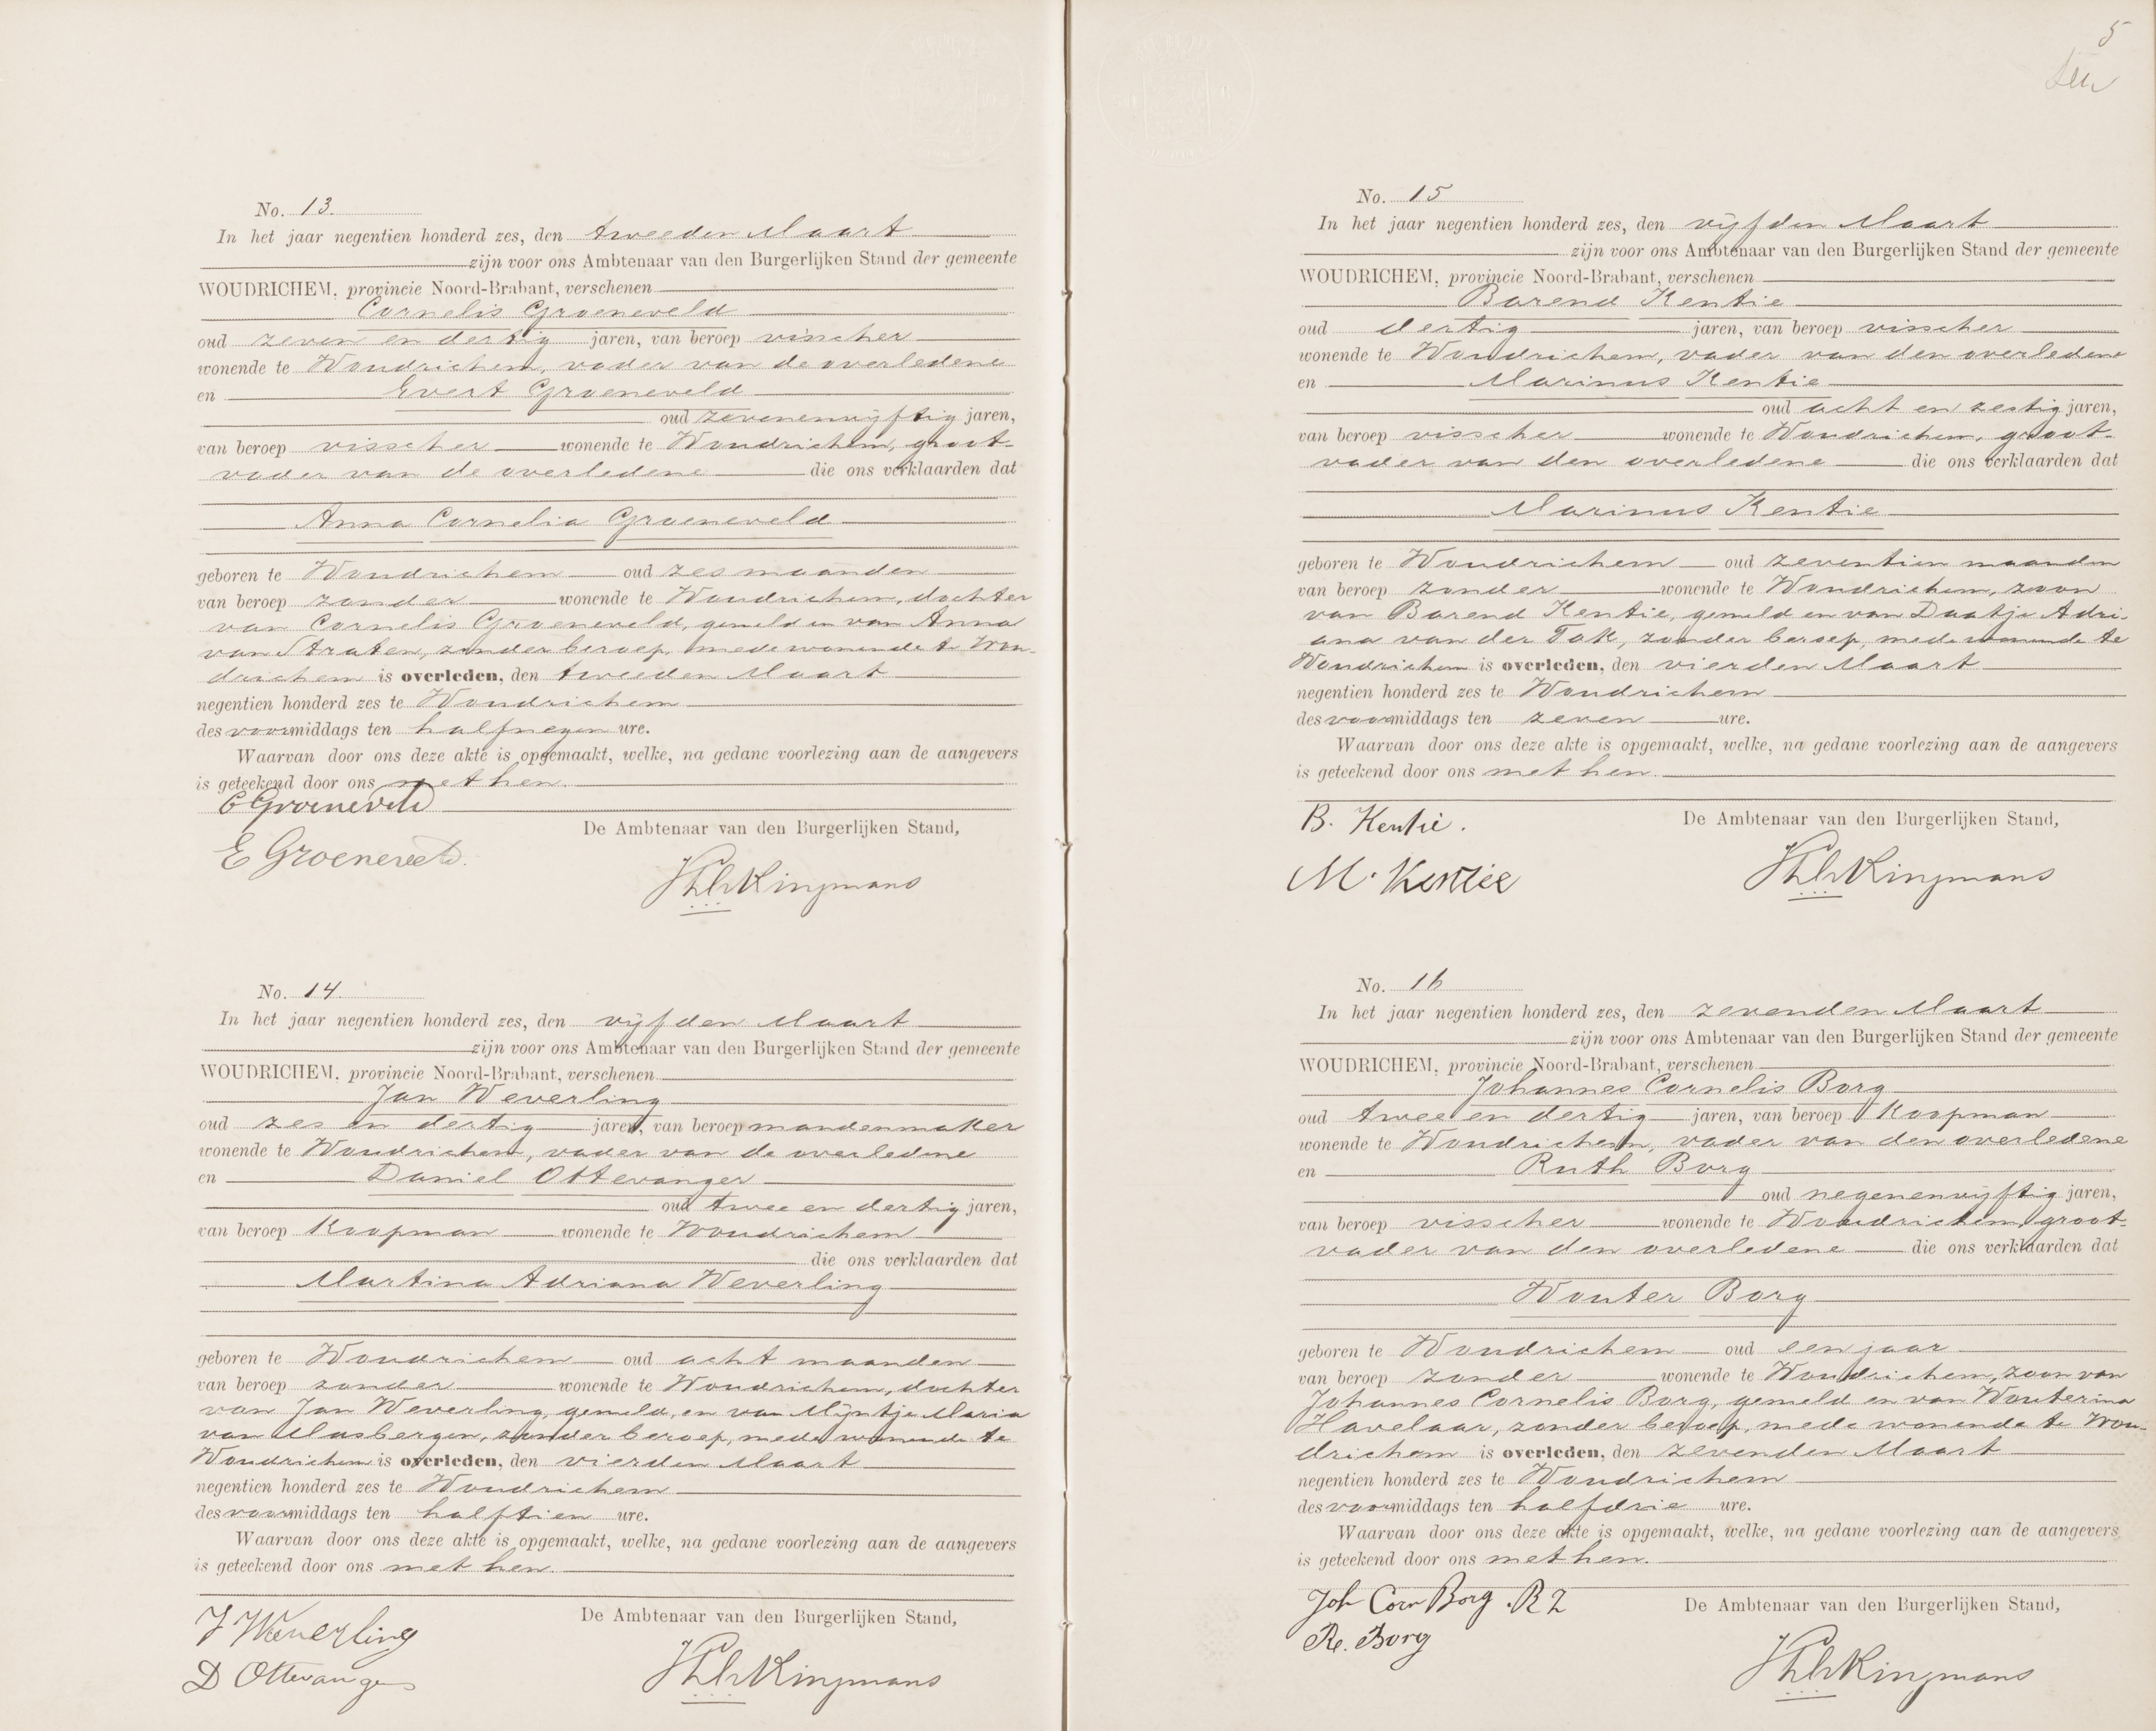 No. 13.
In het jaar negentien honderd zes, den tweeden Maart
zijn voor ons Ambtenaar van den Burgerlijken Stand der gemeente
WOUDRICHEM, provincie Noord-Brabant, verschenen
Cornelis Groeneveld
oud zeven en dertig jaren, van beroep visscher
wonende te Woudrichem, vader van de overledene
en Evert Groeneveld
oud zevenenvijftig jaren,
van beroep visscher wonende te Woudrichem, groot-
vader van de overledene die ons verklaarden dat
Anna Cornelia Groeneveld
geboren te Woudrichem oud zes maanden
van beroep zonder wonende te Woudrichem, dochter
van Cornelis Groeneveld, gemeld en van Anna
van Straten, zonder beroep, mede wonende te Wou-
drichem is overleden, den tweeden Maart
negentien honderd zes te Woudrichem
des voormiddags ten halfnegen ure.
Waarvan door ons deze akte is opgemaakt, welke, na gedane voorlezing aan de aangevers
is geteekend door ons met hen.
C Groeneveld
De Ambtenaar van den Burgerlijken Stand,
E Groeneveld.
No. 14.
In het jaar negentien honderd zes, den vijfden Maart
zijn voor ons Ambtenaar van den Burgerlijken Stand der gemeente
WOUDRICHEM, provincie Noord-Brabant, verschenen
Jan Weverling
oud zes en dertig jaren, van beroep mandenmaker
wonende te Woudrichem, vader van de overledene
en Daniel Ottevanger
oud twee en dertig jaren,
van beroep Koopman wonende te Woudrichem
die ons verklaarden dat
Martina Adriana Weverling
geboren te Woudrichem oud acht maanden
van beroep zonder wonende te Woudrichem, dochter
van Jan Weverling, gemeld, en van Mijntje Maria
van Masbergen, zonder beroep, mede wonende te
Woudrichem is overleden, den vierden Maart
negentien honderd zes te Woudrichem
des voormiddags ten halftien ure.
Waarvan door ons deze akte is opgemaakt, welke, na gedane voorlezing aan de aangevers
is geteekend door ons met hen.
De Ambtenaar van den Burgerlijken Stand,
J Weverling
D Ottevanger
5
No. 15
In het jaar negentien honderd zes, den vijfden Maart
zijn voor ons Ambtenaar van den Burgerlijken Stand der gemeente
WOUDRICHEM, provincie Noord-Brabant, verschenen
Barend Kentie
oud dertig jaren, van beroep visscher
wonende te Woudrichem, vader van den overledene
en Marinus Kentie
oud acht en zestig jaren,
van beroep visscher wonende te Woudrichem, groot-
vader van den overledene die ons verklaarden dat
Marinus Kentie
geboren te Woudrichem oud zeventien maanden
van beroep zonder wonende te Woudrichem, zoon
van Barend Kentie, gemeld en van Daatje Adri-
ana van der Tak, zonder beroep, mede wonende te
Woudrichem is overleden, den vierden Maart
negentien honderd zes te Woudrichem
des voormiddags ten zeven ure.
Waarvan door ons deze akte is opgemaakt, welke, na gedane voorlezing aan de aangevers
is geteekend door ons met hen.
B. Kentie.
De Ambtenaar van den Burgerlijken Stand,
M. Kentie
No. 16
In het jaar negentien honderd zes, den zevenden Maart
zijn voor ons Ambtenaar van den Burgerlijken Stand der gemeente
WOUDRICHEM, provincie Noord-Brabant, verschenen
Johannes Cornelis Borg
oud twee en dertig jaren, van beroep Koopman
wonende te Woudrichem, vader van den overledene
en Ruth Borg
oud negenenvijftig jaren,
van beroep visscher wonende te Woudrichem, groot-
vader van den overledene die ons verklaarden dat
Wouter Borg
geboren te Woudrichem oud een jaar
van beroep zonder wonende te Woudrichem, zoon van
Johannes Cornelis Borg, gemeld en van Wouterina
Havelaar, zonder beroep, mede wonende te Wou-
drichem is overleden, den zevenden Maart
negentien honderd zes te Woudrichem
des voormiddags ten halfdrie ure.
Waarvan door ons deze akte is opgemaakt, welke, na gedane voorlezing aan de aangevers
is geteekend door ons met hen.
Joh Corn Borg. R Z
De Ambtenaar van den Burgerlijken Stand,
R. Borg